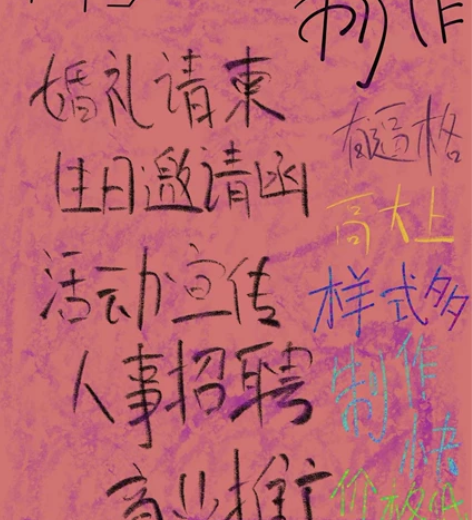 制作
婚礼请柬
有逼格
生日邀请函
高大上
活动宣传
样式多
人事招聘
制作快
商业推广
价格低